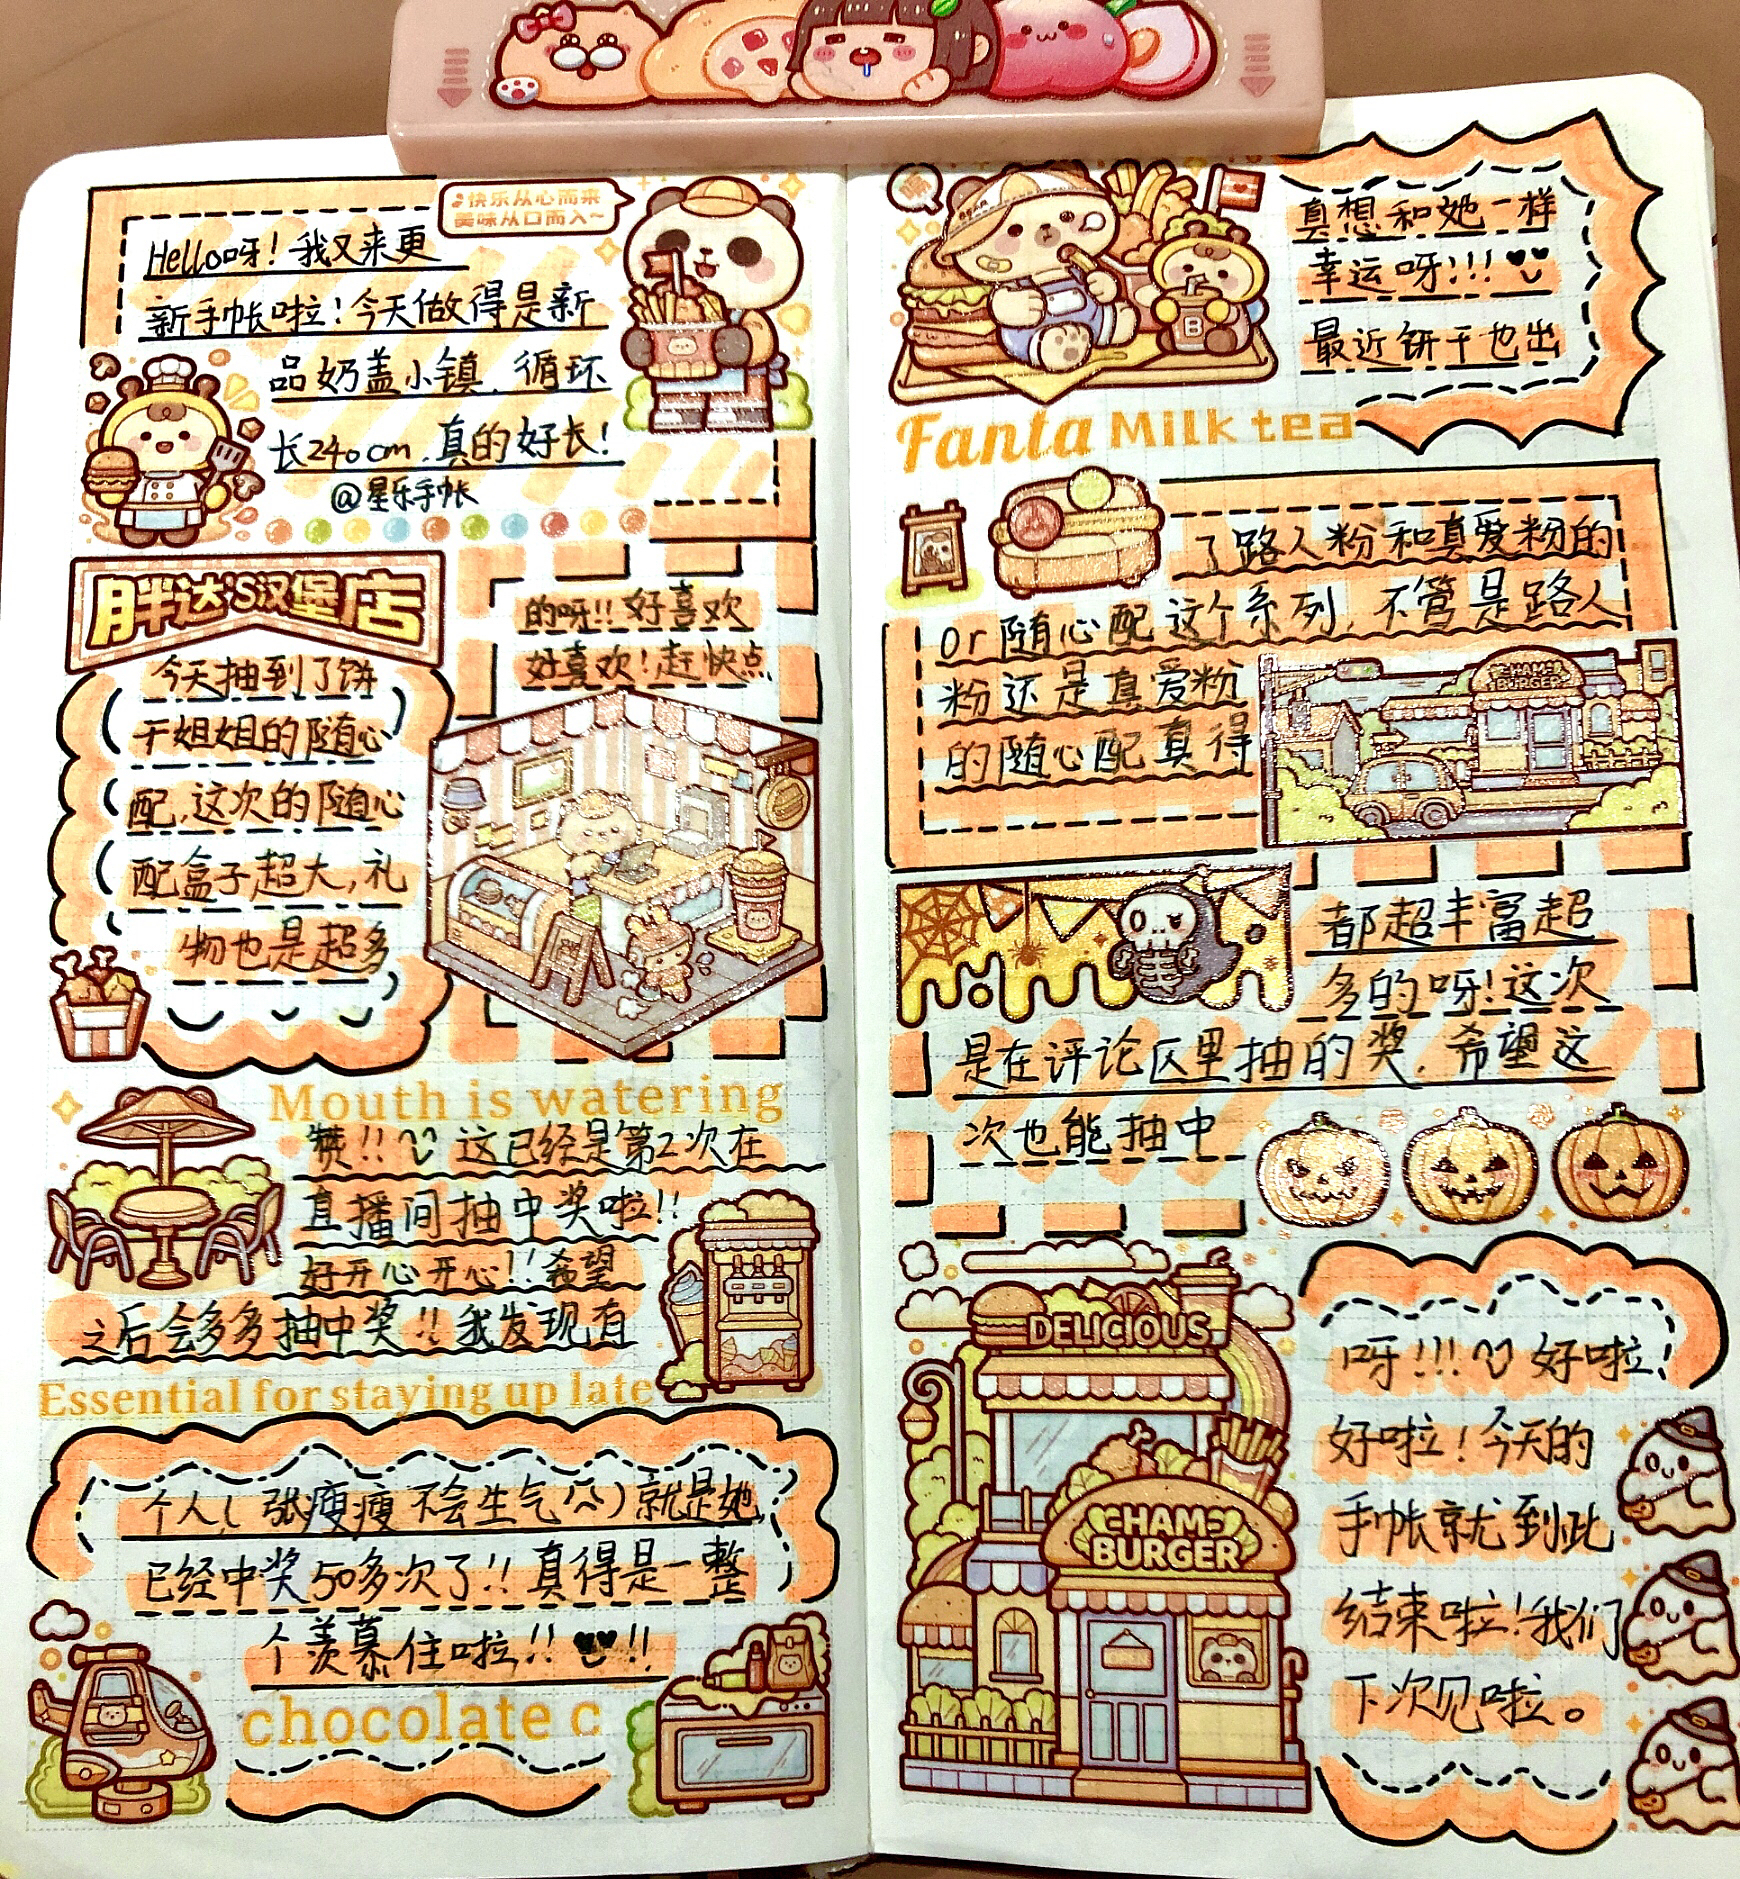 ♪快乐从心而来
美味从口而入~
Hello呀！我又来更
新手帐啦！今天做得是新
品奶盖小镇，循环
长240cm，真的好长！
@星乐手帐
胖达'S汉堡店
今天抽到了饼
干姐姐的随心
配，这次的随心
配盒子超大，礼
物也是超多
的呀!!好喜欢
好喜欢！赶快点
Mouth is watering
赞!! 这已经是第2次在
直播间抽中奖啦!!
好开心开心!!希望
之后会多多抽中奖!!我发现有
Essential for staying up late
个人（张瘦瘦不会生气^^）就是她
已经中奖50多次了!!真得是一整
个羡慕住啦!!♥♥!!
chocolate c
真想和她一样
幸运呀!!!♥♥
最近饼干也出
Fanta Milk tea
了路人粉和真爱粉的
or随心配这个系列，不管是路人
粉还是真爱粉
的随心配真得
CHAMS
BURGER
都超丰富超
多的呀！这次
是在评论区里抽的奖，希望这
次也能抽中
DELICIOUS
CHAMS
BURGER
呀!!! 好啦！
好啦！今天的
手帐就到此
结束啦！我们
下次见啦。
B